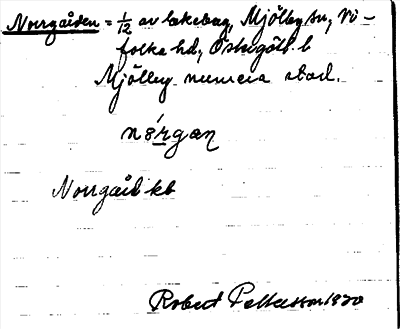 Norrgården = 1/12 av Lakebag, Mjölby sn, Vi-
folka hd, Östergötl. l
Mjölby numera stad.
nórgan
Norrgård kb
Robert Pettersson 1930